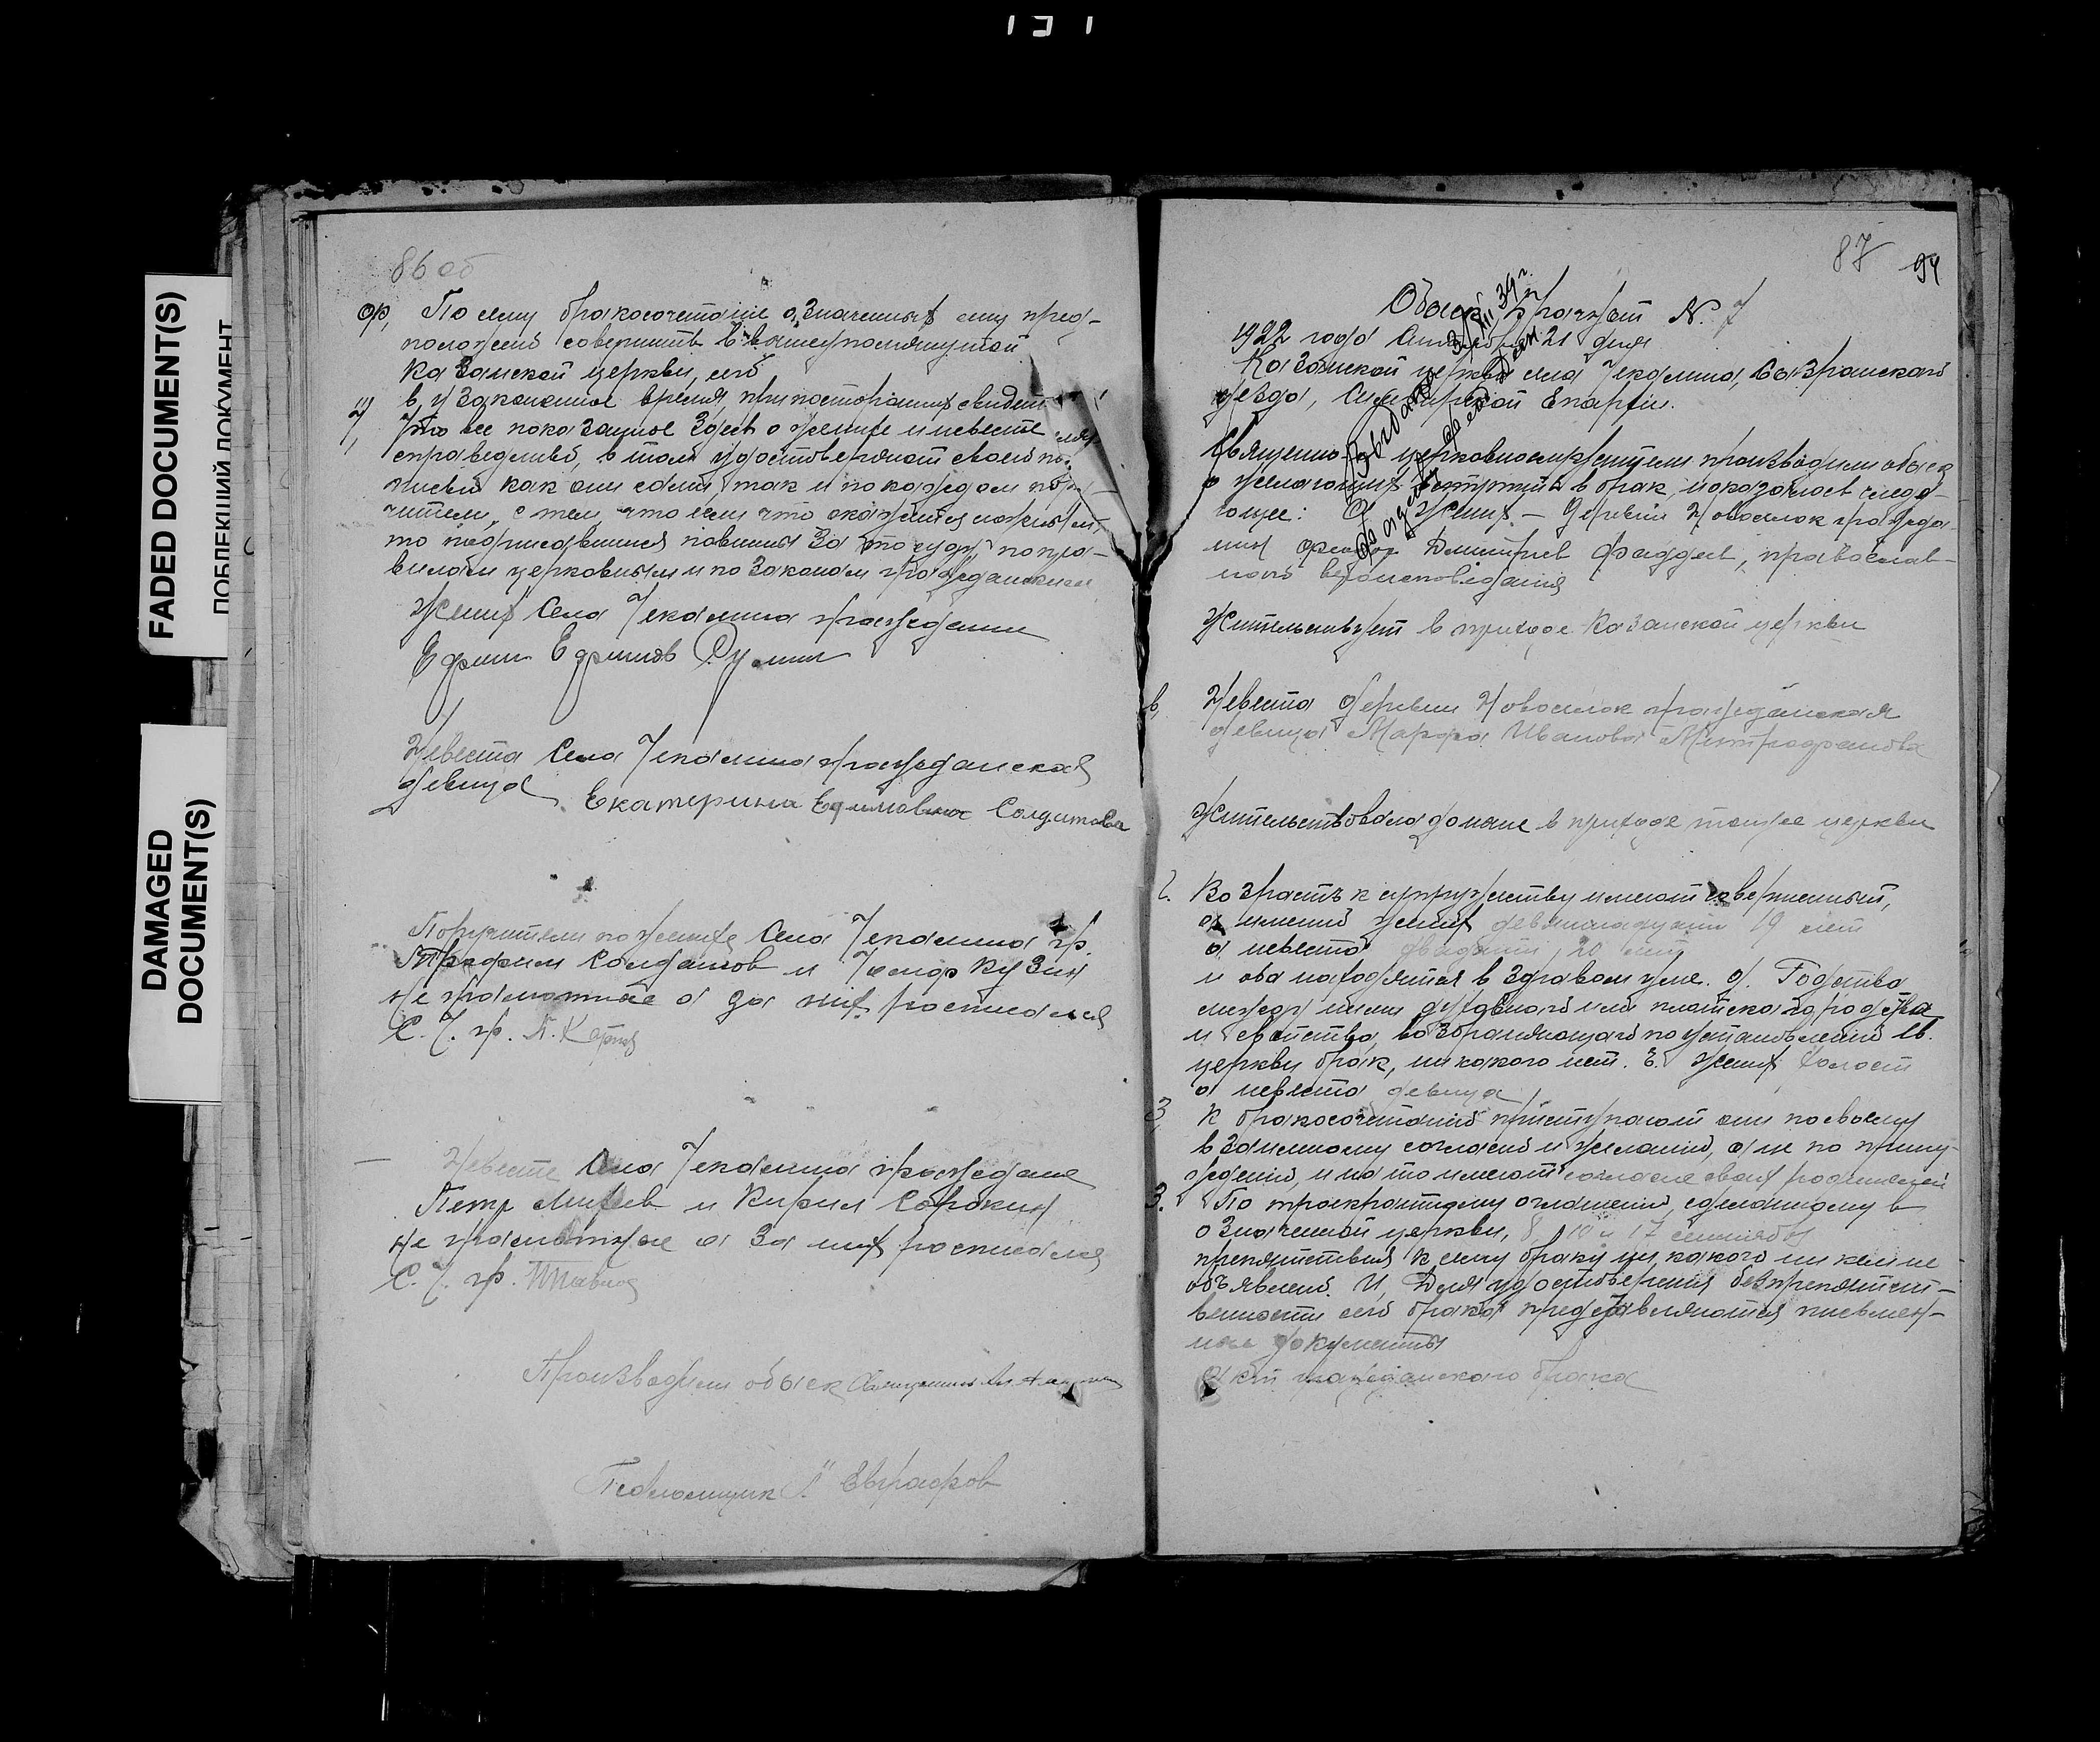 FADED DOCUMENT(S)
ПОБЛЕКШИЙ ДОКУМЕНТ
DAMAGED
DOCUMENT(S)
86 об
По сему бракосочетание означенных лиц пред-
положено совершить в вышеупомянутой
Казанской церкви, сего
в узаконенное время, при посторонних свидет
Что все показанное здесь о женихе и невесте
справедливо, в том удостоверяют своею по
писью как они сами, так и по каждом пору
чители, с тем что если что окажется ложным,
то подписавшиеся повинны за то суду по пра-
вилам церковным и по законам гражданским
Жених Села Текалина гражданин
Ефим Ефимов
Невеста Села Текалина гражданская
девица Екатерина Ефимовна Солдатова
Поручители по женихе Села Текалина гр.
Трофим Солдатов и Кузин
не грамотные а за них росписался
С. Т. гр.
Невесте Села Текалина граждане
Петр и Кирил Сорокин
не грамотные а за них росписался
С. Т. гр.
Производили обыск Священник
Псаломщик Евграфов
87 94
Обыск брачный N. 7
1922 года Сентября 21 дня
Казанской церкви села Текалина, Сызранского
уезда, Симбирской Епархии.
Священно церковнослужители производили обыск
о желающих вступить в брак, и оказалось следу-
ющее: Жених - деревни Новоселок гражда
нин Федор Дмитриев Фаддеев, православ-
ного вероисповедания
Жительствует в приходе Казанской церкви
Невеста деревни Новоселок гражданская
девица Марфа Иванова Митрофанова
Жительствовала доныне в приходе той же церкви
2. Возраст к супружеству имеют совершенный,
а именно жених девятнадцати 19 лет
а невеста двадцати, 20 лет
и оба находятся в здравом уме. д. Родства
между ними духовного или плотского родства
и свойства, возбраняющаго по установлению св.
церкви брак, никакого нет. Е. Жених холост
а невеста девица
3 К бракосочетанию приступают они по своему
взаимному согласию и желанию, а не по прину
ждению, и на то имеют согласие своих родителей
3. По троекратному оглашению, сделанному в
означенной церкви, 8, 10 и 17 сентября
препятствия к сему браку никакого ни кем не
объявлено. И, Для удостоверения безпрепятст-
венности сего брака представляются письмен-
ные документы
акт гражданского брака